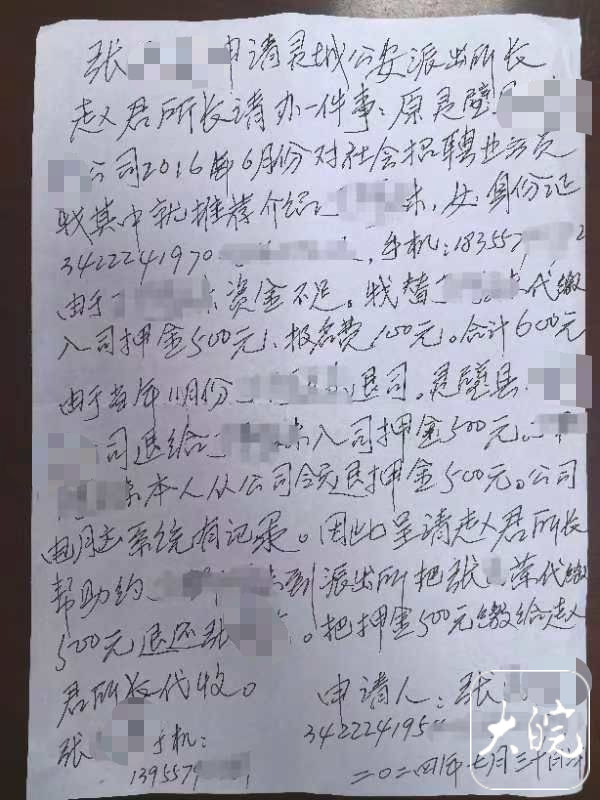 张 申请灵城公安派出所长
赵义君所长请办一件事：原灵璧
公司2016年6月份对社会招聘业务员
我其中就推荐介绍 ，女，身份证
3422241970 ，手机：183557 2
由于 资金不足。我替 代缴
入司押金500元、报名费100元。合计600元
由于当年11月份 退司。灵璧县
司退给 入司押金500元。
本人从公司领退押金500元。公司
电脑系统有记录。因此呈请赵义君所长
帮助约 到派出所把张 荣代缴
500元退还张 。把押金500元缴给赵义
君所长代收。 申请人：张
张 手机： 342224195
139557
二〇二四年七月三十日
大皖